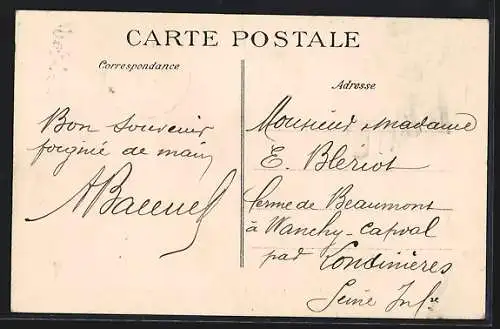 CARTE POSTALE
Correspondance
Adresse
Bon Souvenir
poignée de main
Monsieur & madame
E. Bleriot
ferme de Beaumont
à Wanchy-Capval
par Londinières
Seine Infre